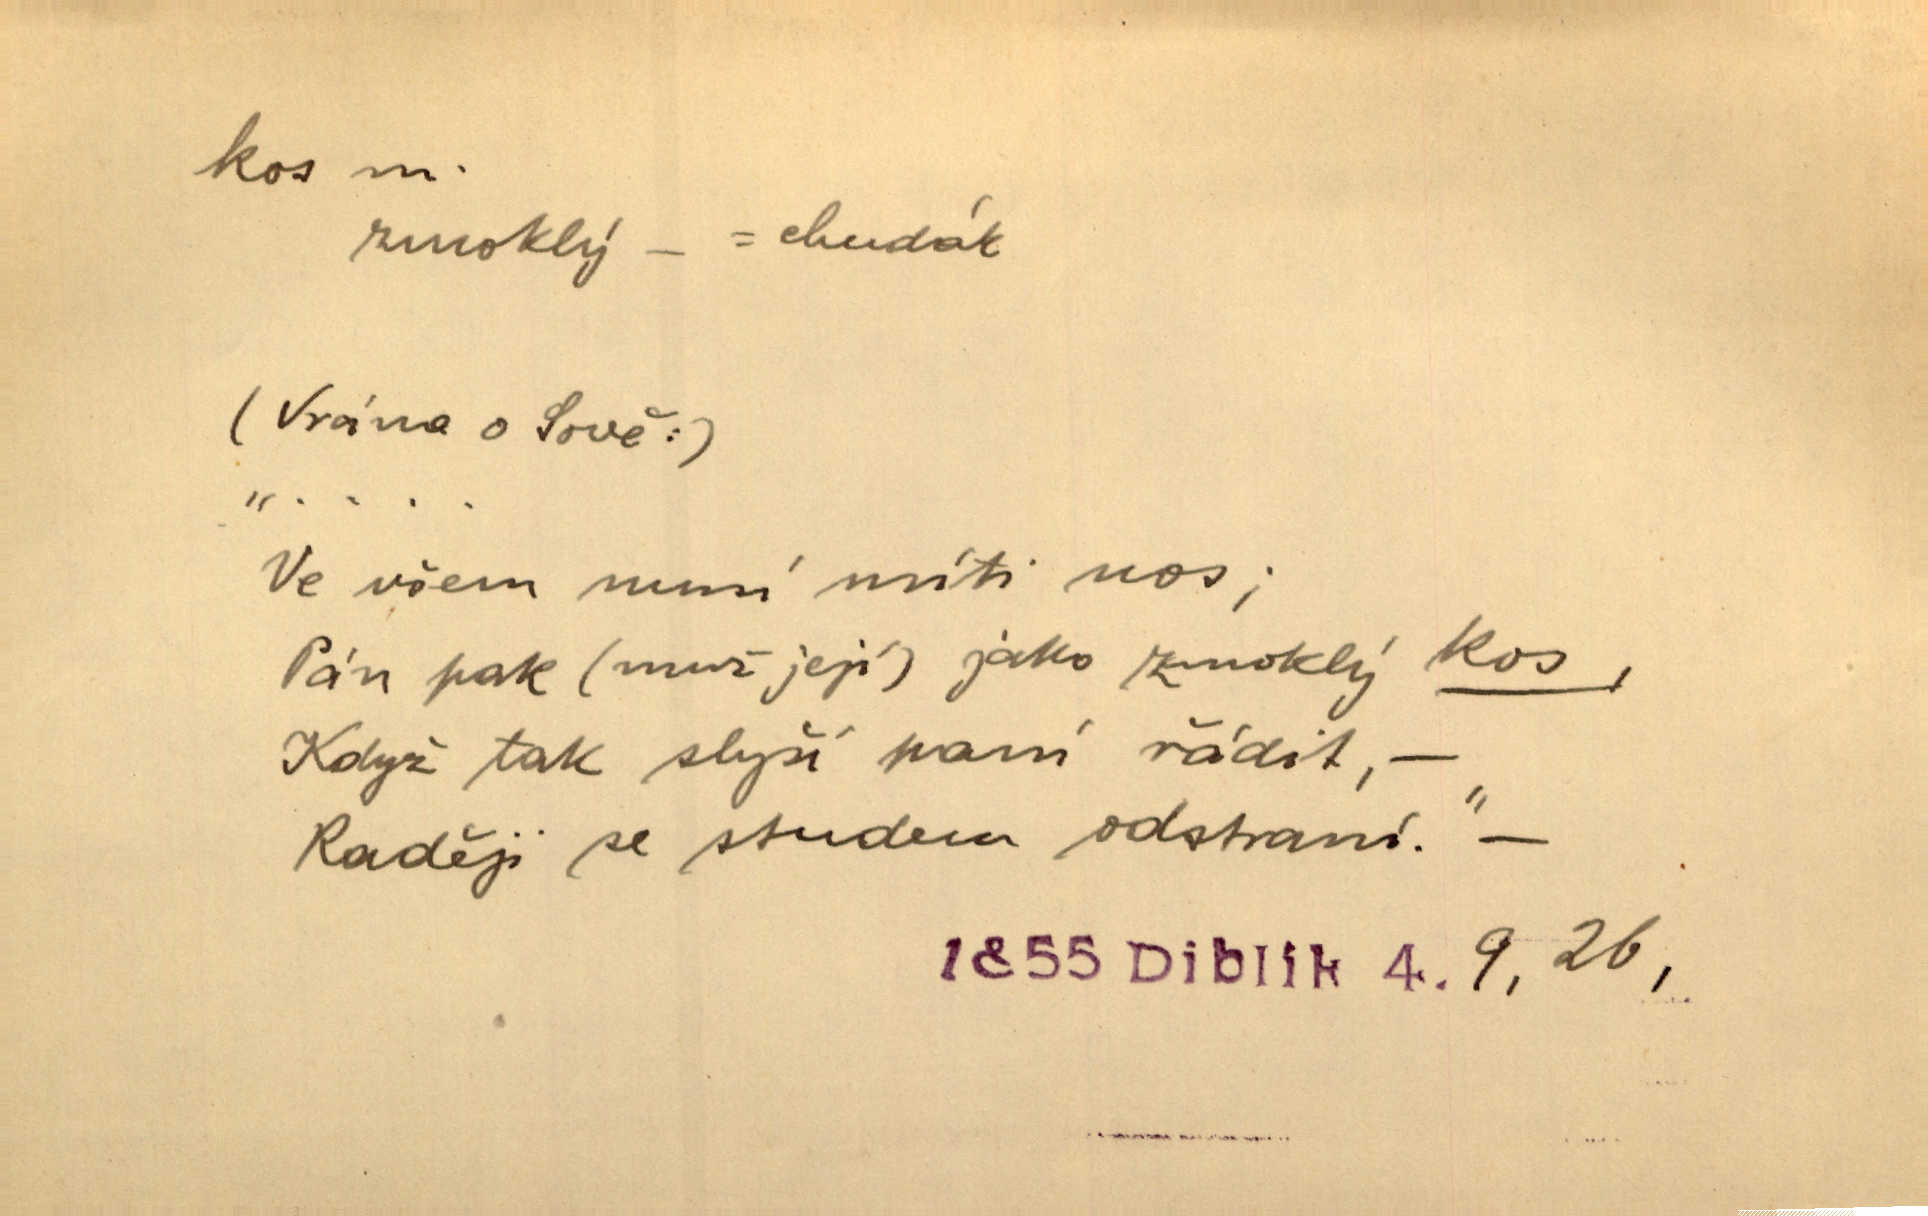 kos m.
zmoklý – = chudák
(Vrána o Sově:)
" . . . .
Ve všem musí míti nos;
Pán pak (muž její) jako zmoklý kos,
Když tak slyší paní řádit, –
Raději se studem odstraní." –
1855 Diblík 4. 9, 26,